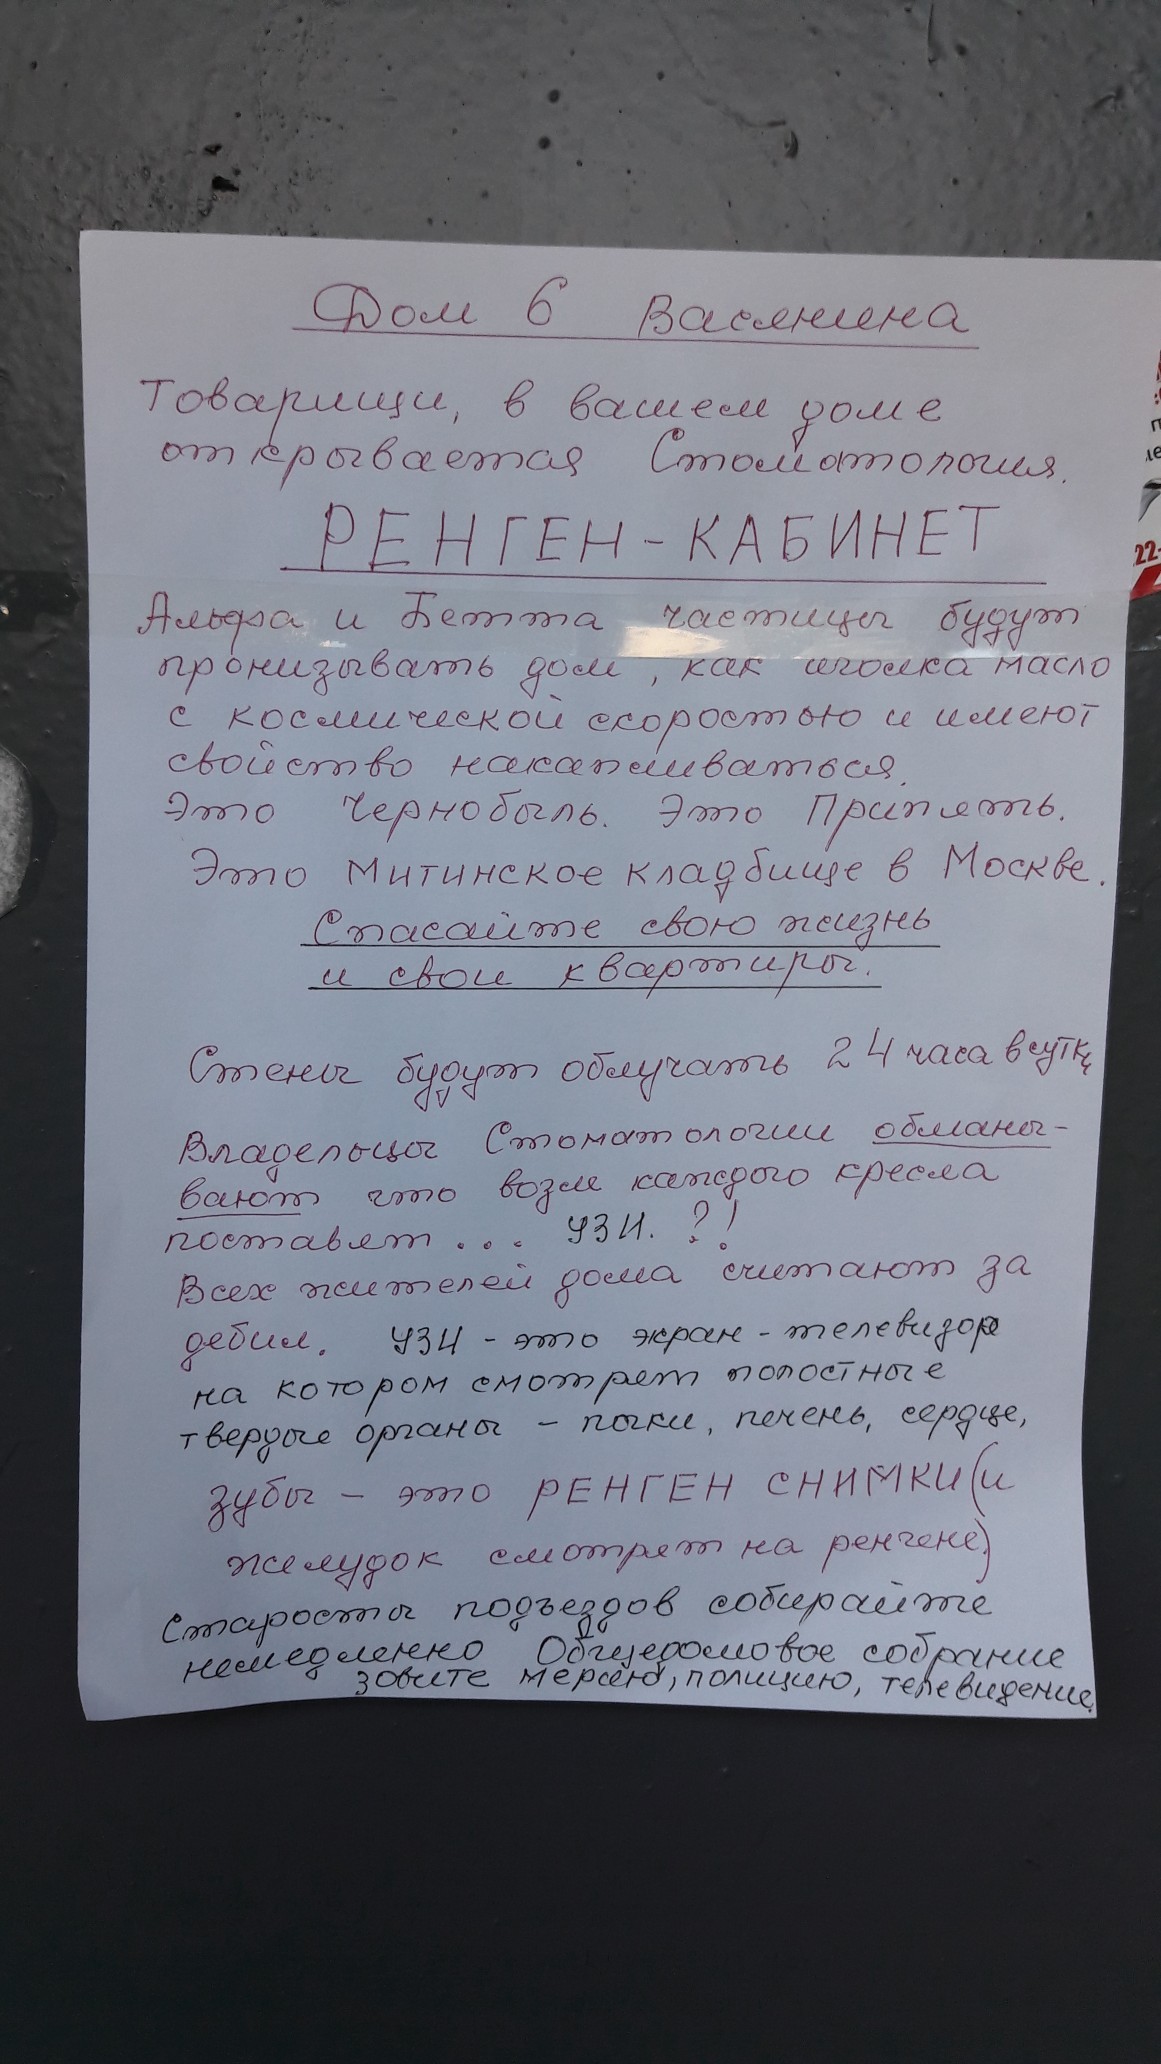 Дом 6 Васянина
Товарищи, в вашем доме
открывается Стоматология.
РЕНГЕН-КАБИНЕТ
Альфа и Бетта частицы будут
пронизывать дом, как иголка масло
с космической скоростью и имеют
свойство накапливаться.
Это Чернобыль. Это Припять.
Это Митинское кладбище в Москве.
Спасайте свою жизнь
и свои квартиры.
Стены будут облучать 24 часа в сутки
Владельцы Стоматологии обманы-
вают что возле каждого кресла
поставят... УЗИ. ?!
Всех жителей дома считают за
дебил. УЗИ - это экран - телевизор
на котором смотрят полостные
твердые органы - почки, печень, сердце,
зубы - это РЕНГЕН СНИМКИ (и
желудок смотрят на ренгене.)
Старосты подъездов собирайте
немедленно Общедомовое собрание
зовите мэрию, полицию, телевидение.
22-